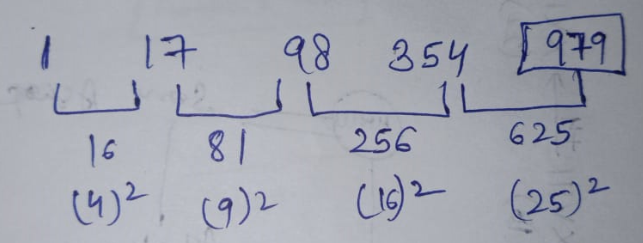 1 17 98 354 979
16 81 256 625
(4)² (9)² (16)² (25)²